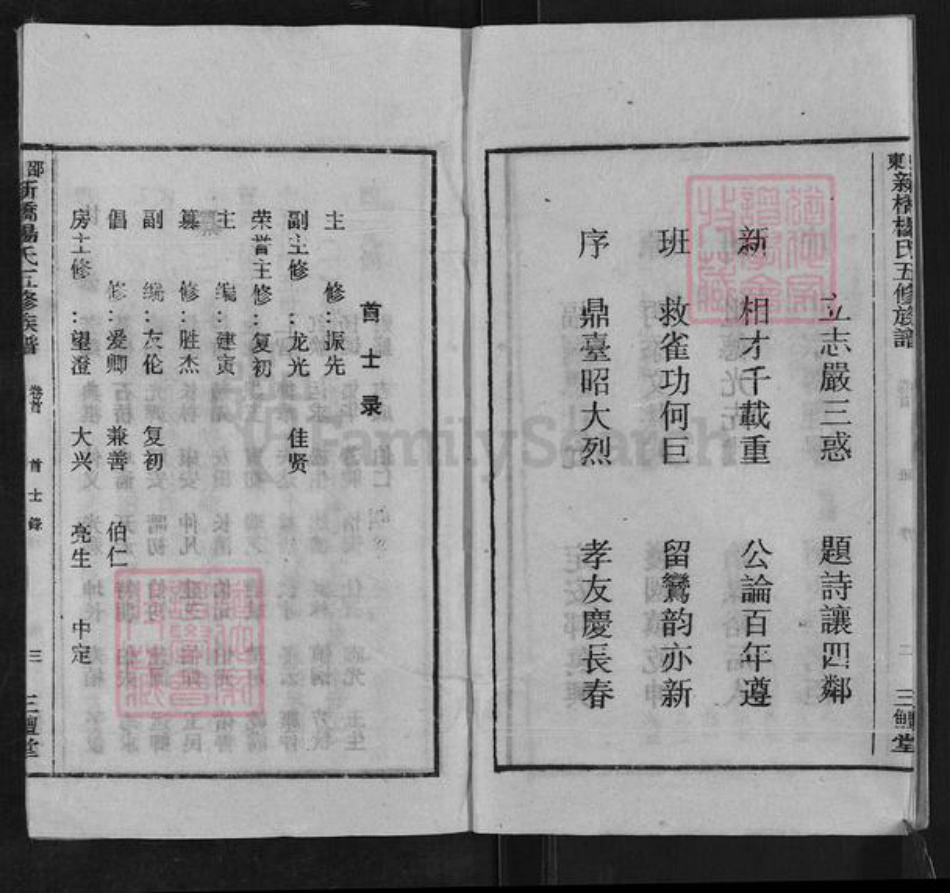 新橋楊氏五修族譜
三鱣堂
立志嚴三惑 題詩讓四鄰
新 相才千載重 公論百年遵
班 救雀功何巨 留鸞韵亦新
序 鼎臺昭大烈 孝友慶長春
首士录
主修：振先
副主修：龙光 佳贤
荣誉主修：复初
主编：建寅
纂修：胜杰
副编：友伦 复初
倡修：爱卿 兼善 伯仁
房主修：望澄 大兴 亮生 中定
新橋楊氏五修族譜 卷首 首士錄 三 三鱣堂
FamilySearch